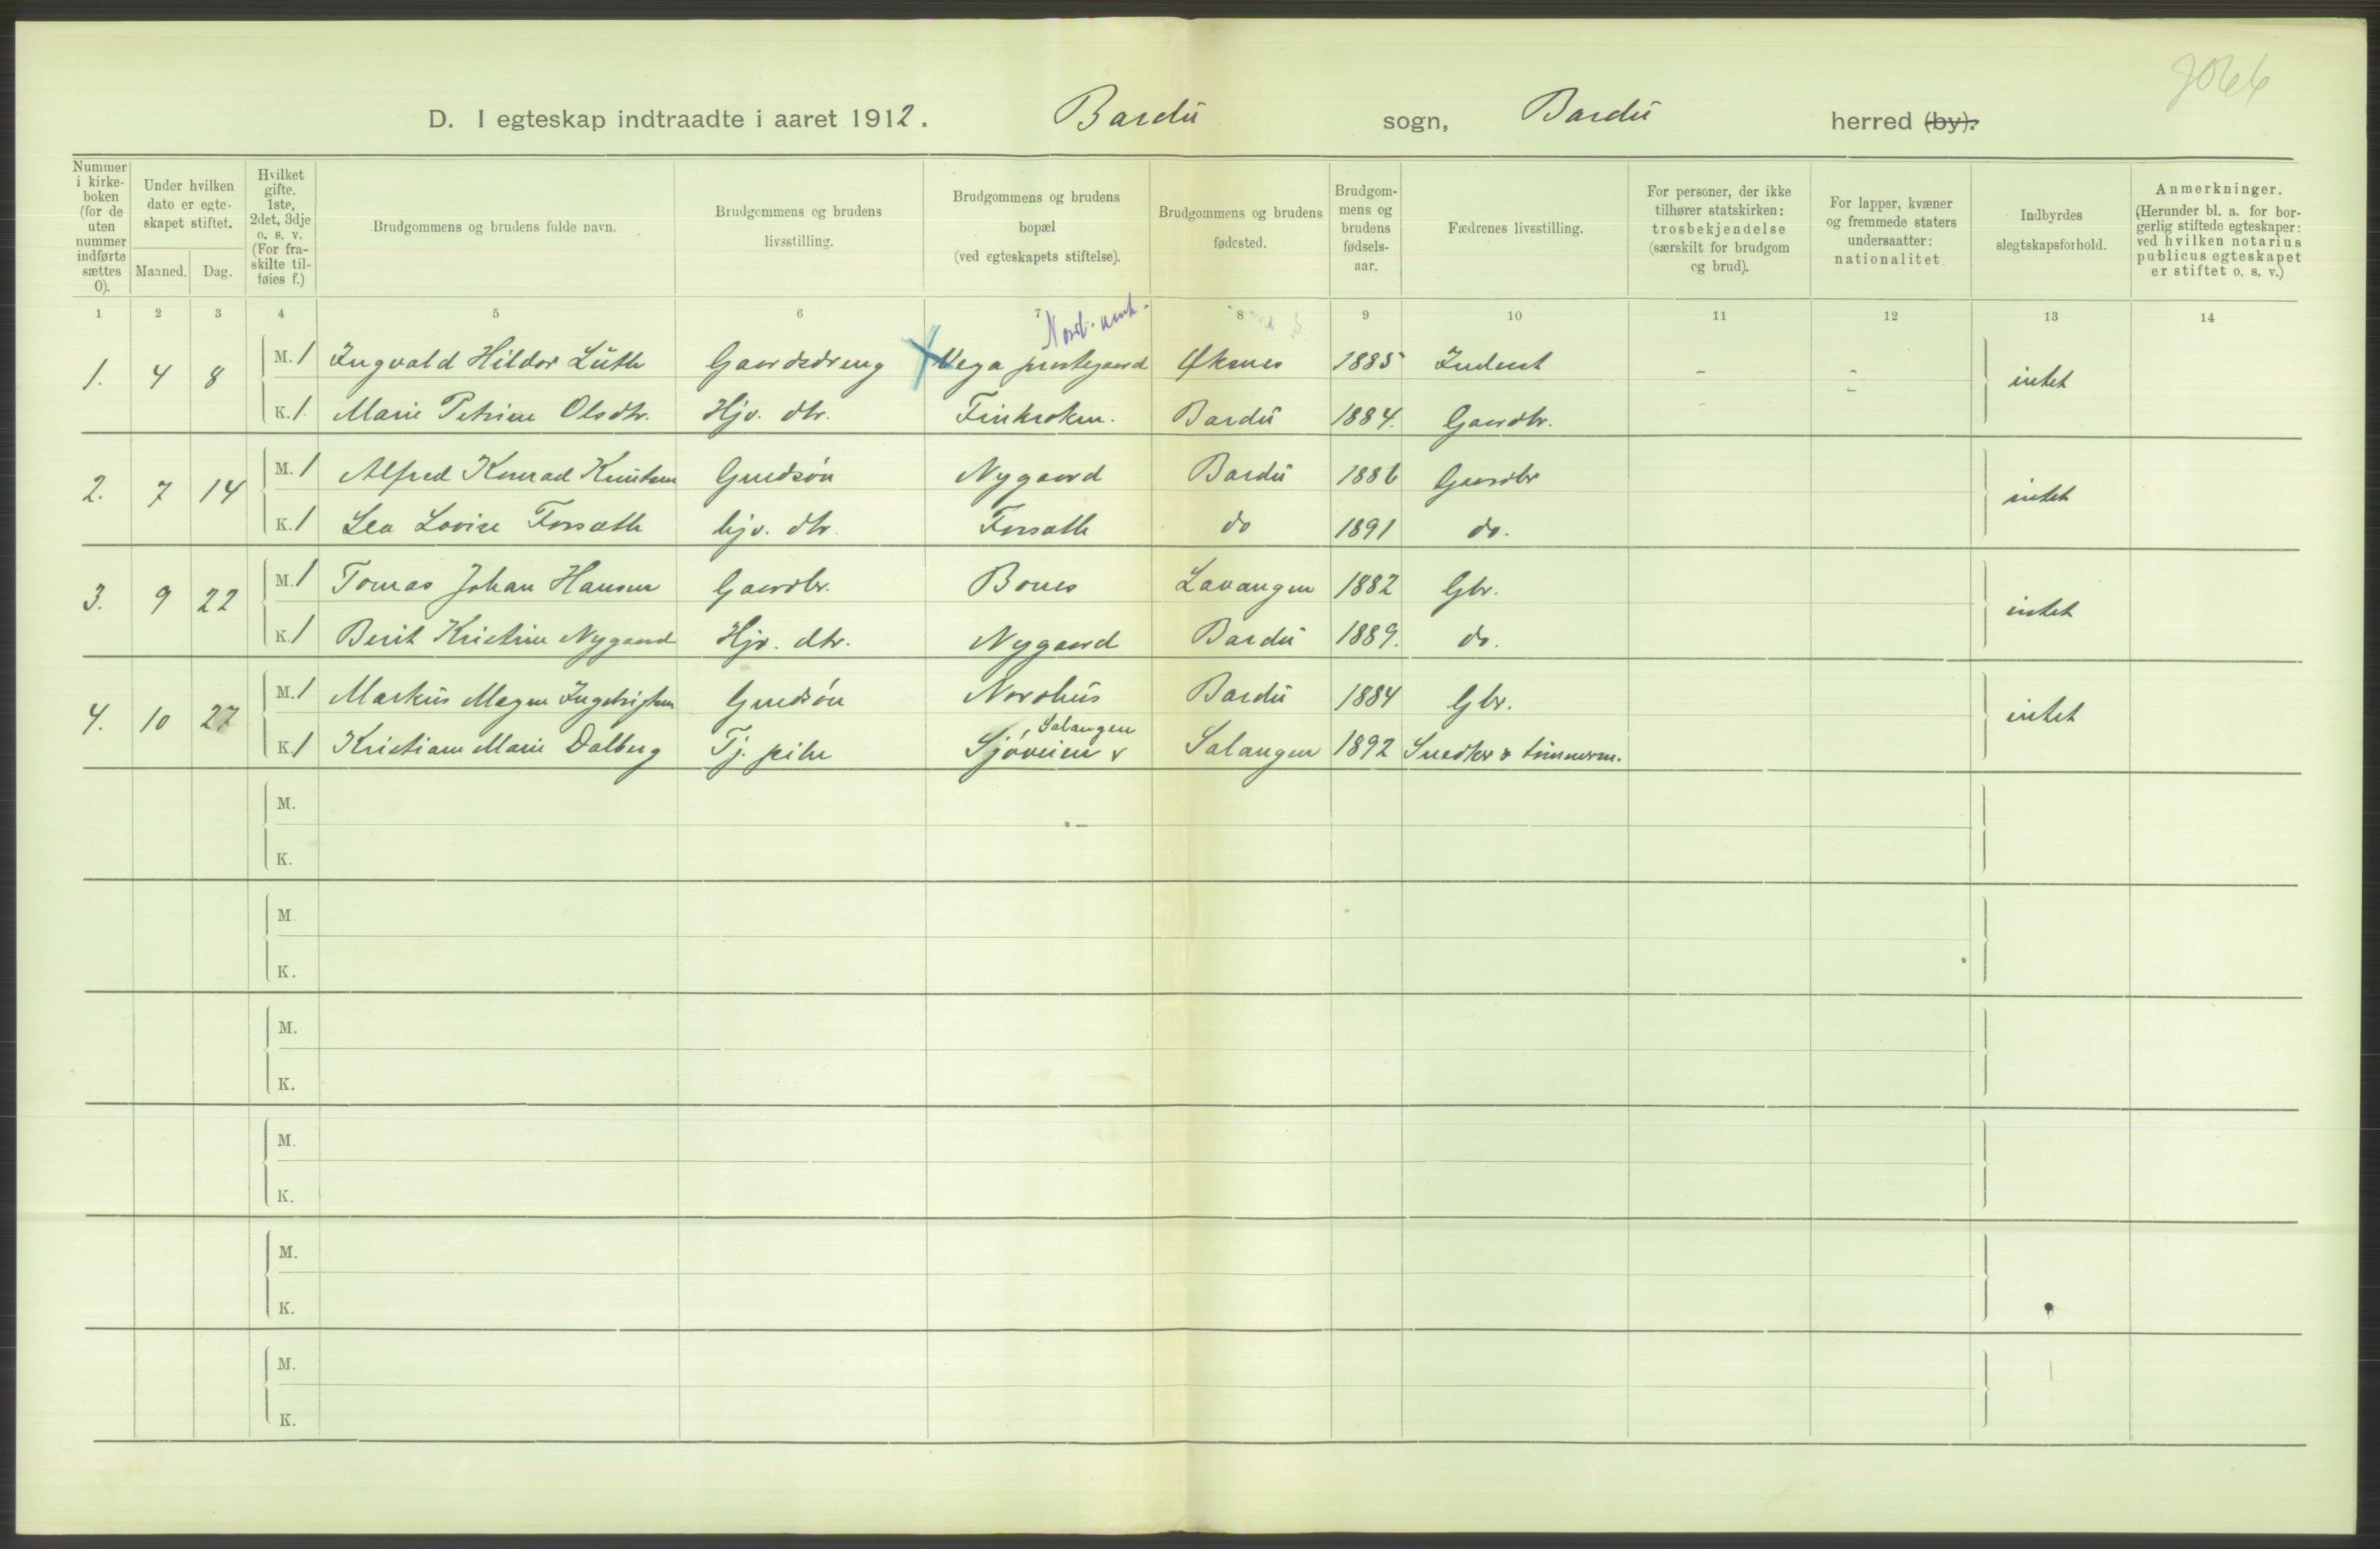 D. I egteskap indtraadte i aaret 1912. Bardu sogn, Bardu herred (by).
Nummer i kirkeboken (for de uten nummer indførte sættes 0).
Under hvilken dato er egteskapet stiftet.
Maaned. Dag.
Hvilket gifte. 1ste, 2det, 3dje o. s. v. (For fraskilte tilføies f.)
Brudgommens og brudens fulde navn.
Brudgommens og brudens livsstilling.
Brudgommens og brudens bopæl (ved egteskapets stiftelse).
Brudgommens og brudens fødested.
Brudgommens og brudens fødselsaar.
Fædrenes livsstilling.
For personer, der ikke tilhører statskirken: trosbekjendelse (særskilt for brudgom og brud).
For lapper, kvæner og fremmede staters undersaatter: nationalitet.
Indbyrdes slegtskapsforhold.
Anmerkninger. (Herunder bl. a. for borgerlig stiftede egteskaper: ved hvilken notarius publicus egteskapet er stiftet o. s. v.)
1 2 3 4 5 6 7 8 9 10 11 12 13 14
Nord. amt.
1. 4 8 M. 1 Ingvald Hildor Lüth Gaardsdreng Vega prestegaard Øksnes 1885 - - intet
K. 1. Marie Petrine Olsdtr. Hjv. dtr. Finkroken. Bardu 1884. Gaardbr.
2. 7 14 M. 1 Alfred Konrad Knutsen Grdsøn Nygaard Bardu 1886 Gaardbr intet
K. 1 Lea Lovise Forsæth hjv. dtr. Forsæth do 1891 do.
3. 9 22 M. 1 Tomas Johan Hansen Gaardbr. Bones Lavangen 1882 Gbr. intet
K. 1 Berit Kristine Nygaard Hjv. dtr. Nygaard Bardu 1889. do.
4. 10 27 M. 1 Markus Magnus Ingebrigtsen Grdsøn Nordhus Bardu 1884 Gbr. intet
, Salangen
K. 1 Kristiane Marie Dalberg Tj. pike Sjøveien v Salangen 1892 Snedker & tømmerm.
M.
K.
M.
K.
M.
K.
M.
K.
M.
K.
M.
K.